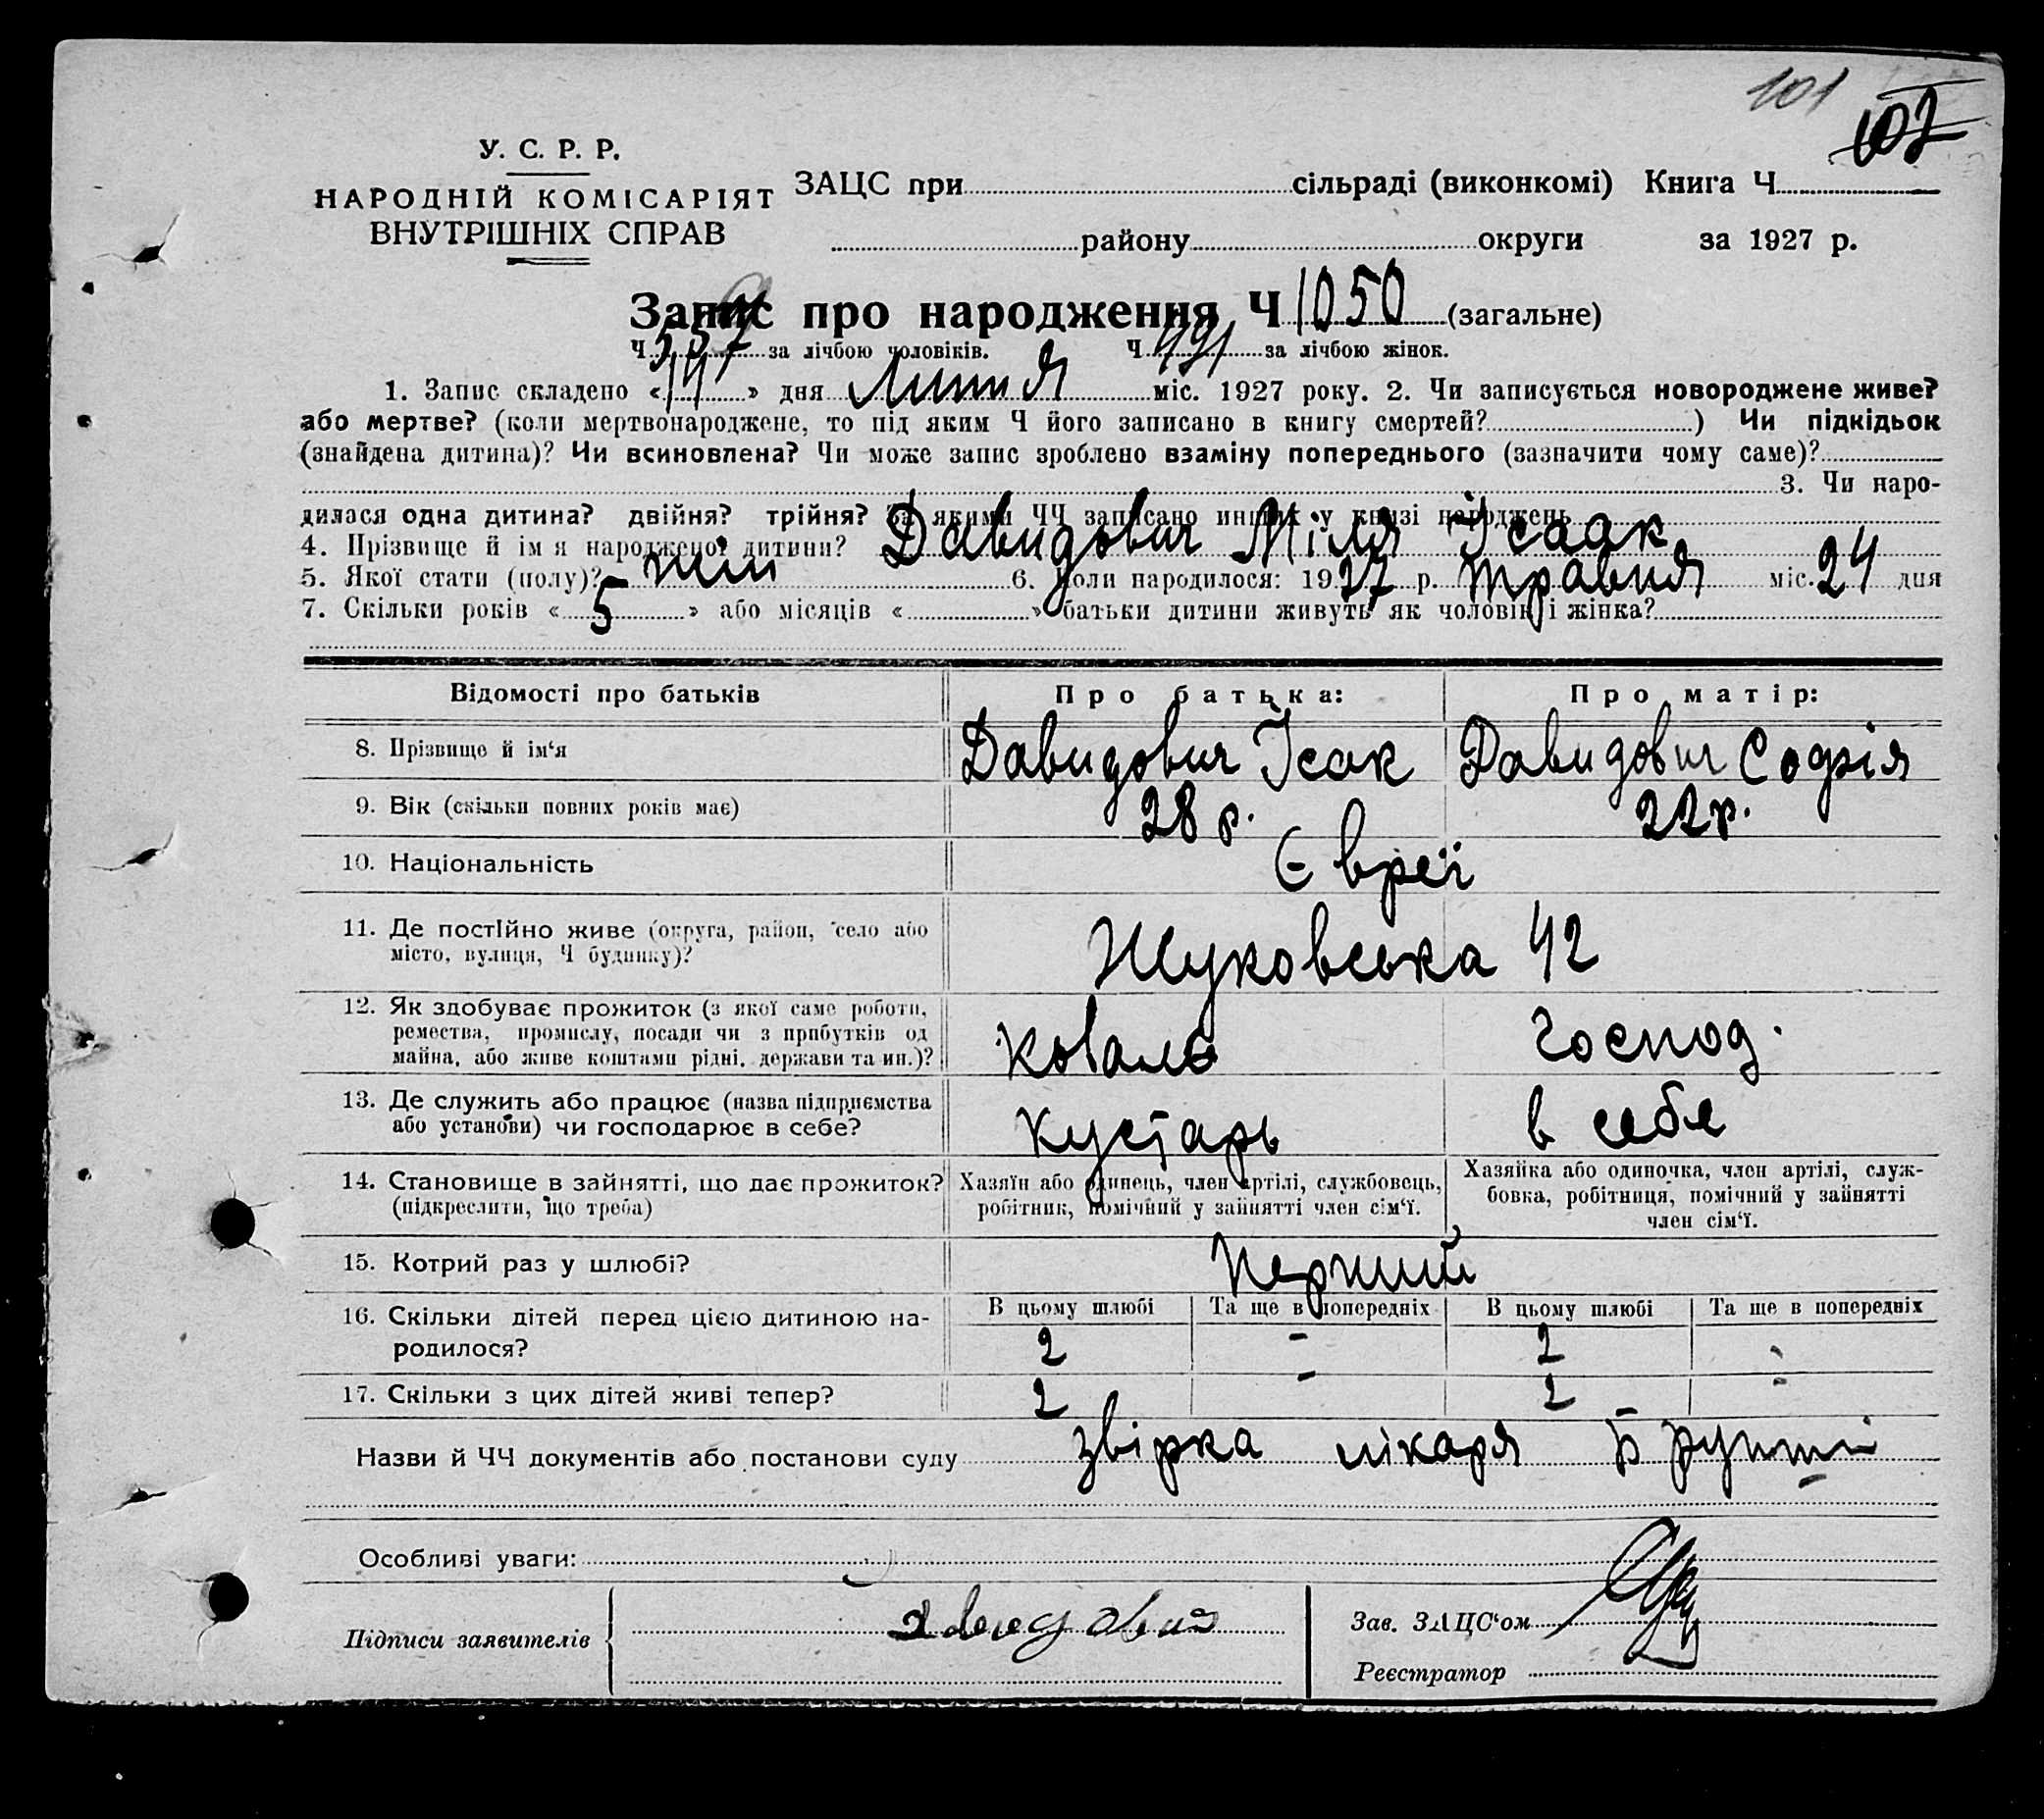 101
102
У. С. Р. Р.
НАРОДНІЙ КОМІСАРІЯТ
ВНУТРІШНІХ СПРАВ
ЗАЦС при сільраді (виконкомі) Книга Ч
району округи за 1927 р.
Запис про народження Ч 1050 (загальне)
Ч за лічбою чоловіків. Ч 491 за лічбою жінок.
1. Запис складено «14» дня Липня міс. 1927 року. 2. Чи записується новороджене живе?
або мертве? (коли мертвонароджене, то під яким Ч його записано в книгу смертей? ) Чи підкідьок
(знайдена дитина)? Чи всиновлена? Чи може запис зроблено взаміну попереднього (зазначити чому саме)?
3. Чи наро-
дилася одна дитина? двійня? трійня? За якими ЧЧ записано инших у книзі народжень
4. Прізвище й ім я народженої дитини? Давидович Міля Ісаак
5. Якої стати (полу)? жін 6. Коли народилося: 1927 р. травня міс. 24 дня
7. Скільки років «5» або місяців « » батьки дитини живуть як чоловік і жінка?
Відомості про батьків Про батька: Про матір:
8. Прізвище й ім‘я Давидович Ісак Давидович Софія
9. Вік (скільки повних років має) 28 р. 22 р.
10. Національність Євреї
11. Де постійно живе (округа, район, село або
місто, вулиця, Ч будинку)? Жуковська 42
12. Як здобуває прожиток (з якої саме роботи,
ремества, промислу, посади чи з прибутків од
майна, або живе коштами рідні, держави та ин.)? Коваль Господ.
13. Де служить або працює (назва підприємства
або установи) чи господарює в себе? Кустарь в себе
14. Становище в зайнятті, що дає прожиток?
(підкреслити, що треба)
Хазяїн або одинець, член артілі, службовець,
робітник, помічний у зайнятті член сім‘ї.
Хазяйка або одиночка, член артілі, служ-
бовка, робітниця, помічний у зайнятті
член сім‘ї.
15. Котрий раз у шлюбі? Перший
16. Скільки дітей перед цією дитиною на-
родилося?
В цьому шлюбі Та ще в попередніх В цьому шлюбі Та ще в попередніх
2 - 2 -
17. Скільки з цих дітей живі тепер? 2 - 2 -
Назви й ЧЧ документів або постанови суду звірка лікаря
Особливі уваги:
Підписи заявителів Давидович
Зав. ЗАЦС‘ом
Реєстратор